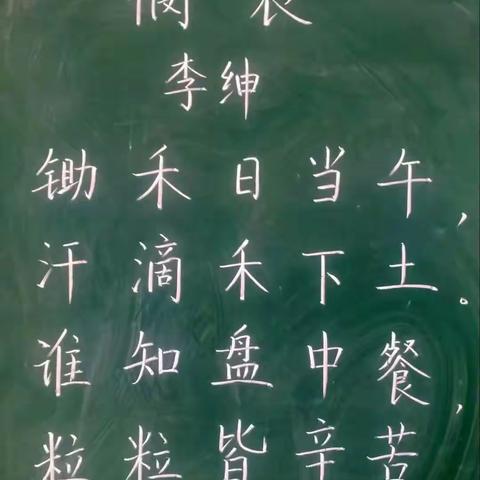 悯农
李绅
锄禾日当午，
汗滴禾下土。
谁知盘中餐，
粒粒皆辛苦